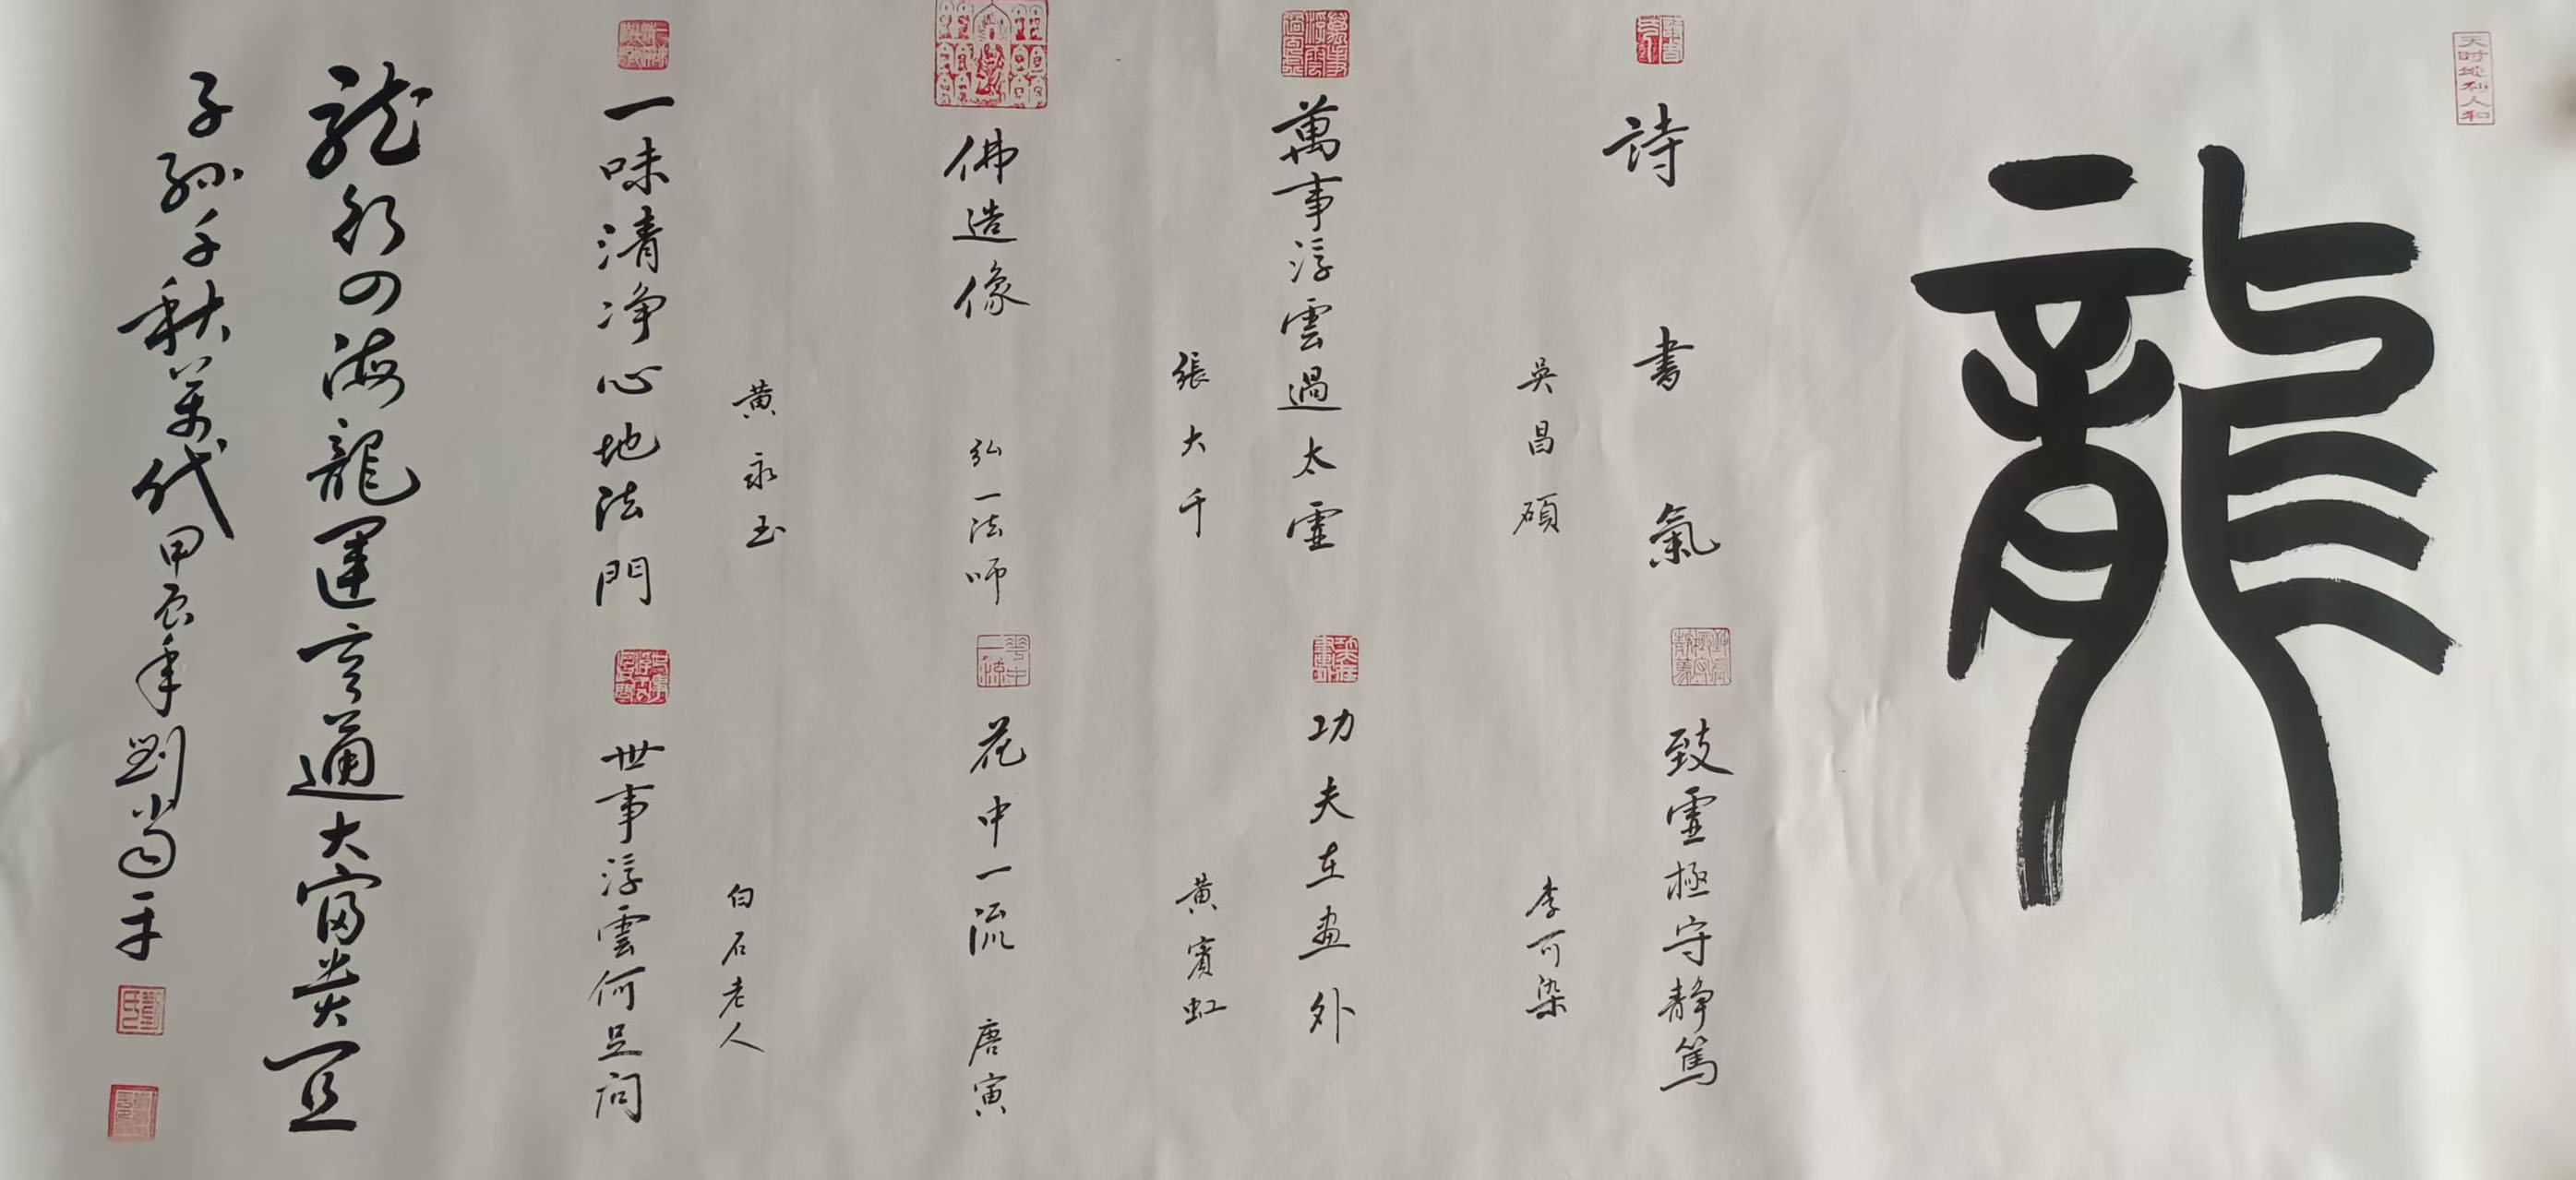 天时地利人和
龍
詩書氣
吳昌碩
致虛極守靜篤
李可染
萬事浮雲過太虛
張大千
功夫在畫外
黃賓虹
佛造像
弘一法师
花中一流
唐寅
黄永玉
一味清净心地法門
白石老人
世事浮雲何足问
龍行四海龍運亨通大富貴宜
子孫千秋萬代甲辰年劉尚平